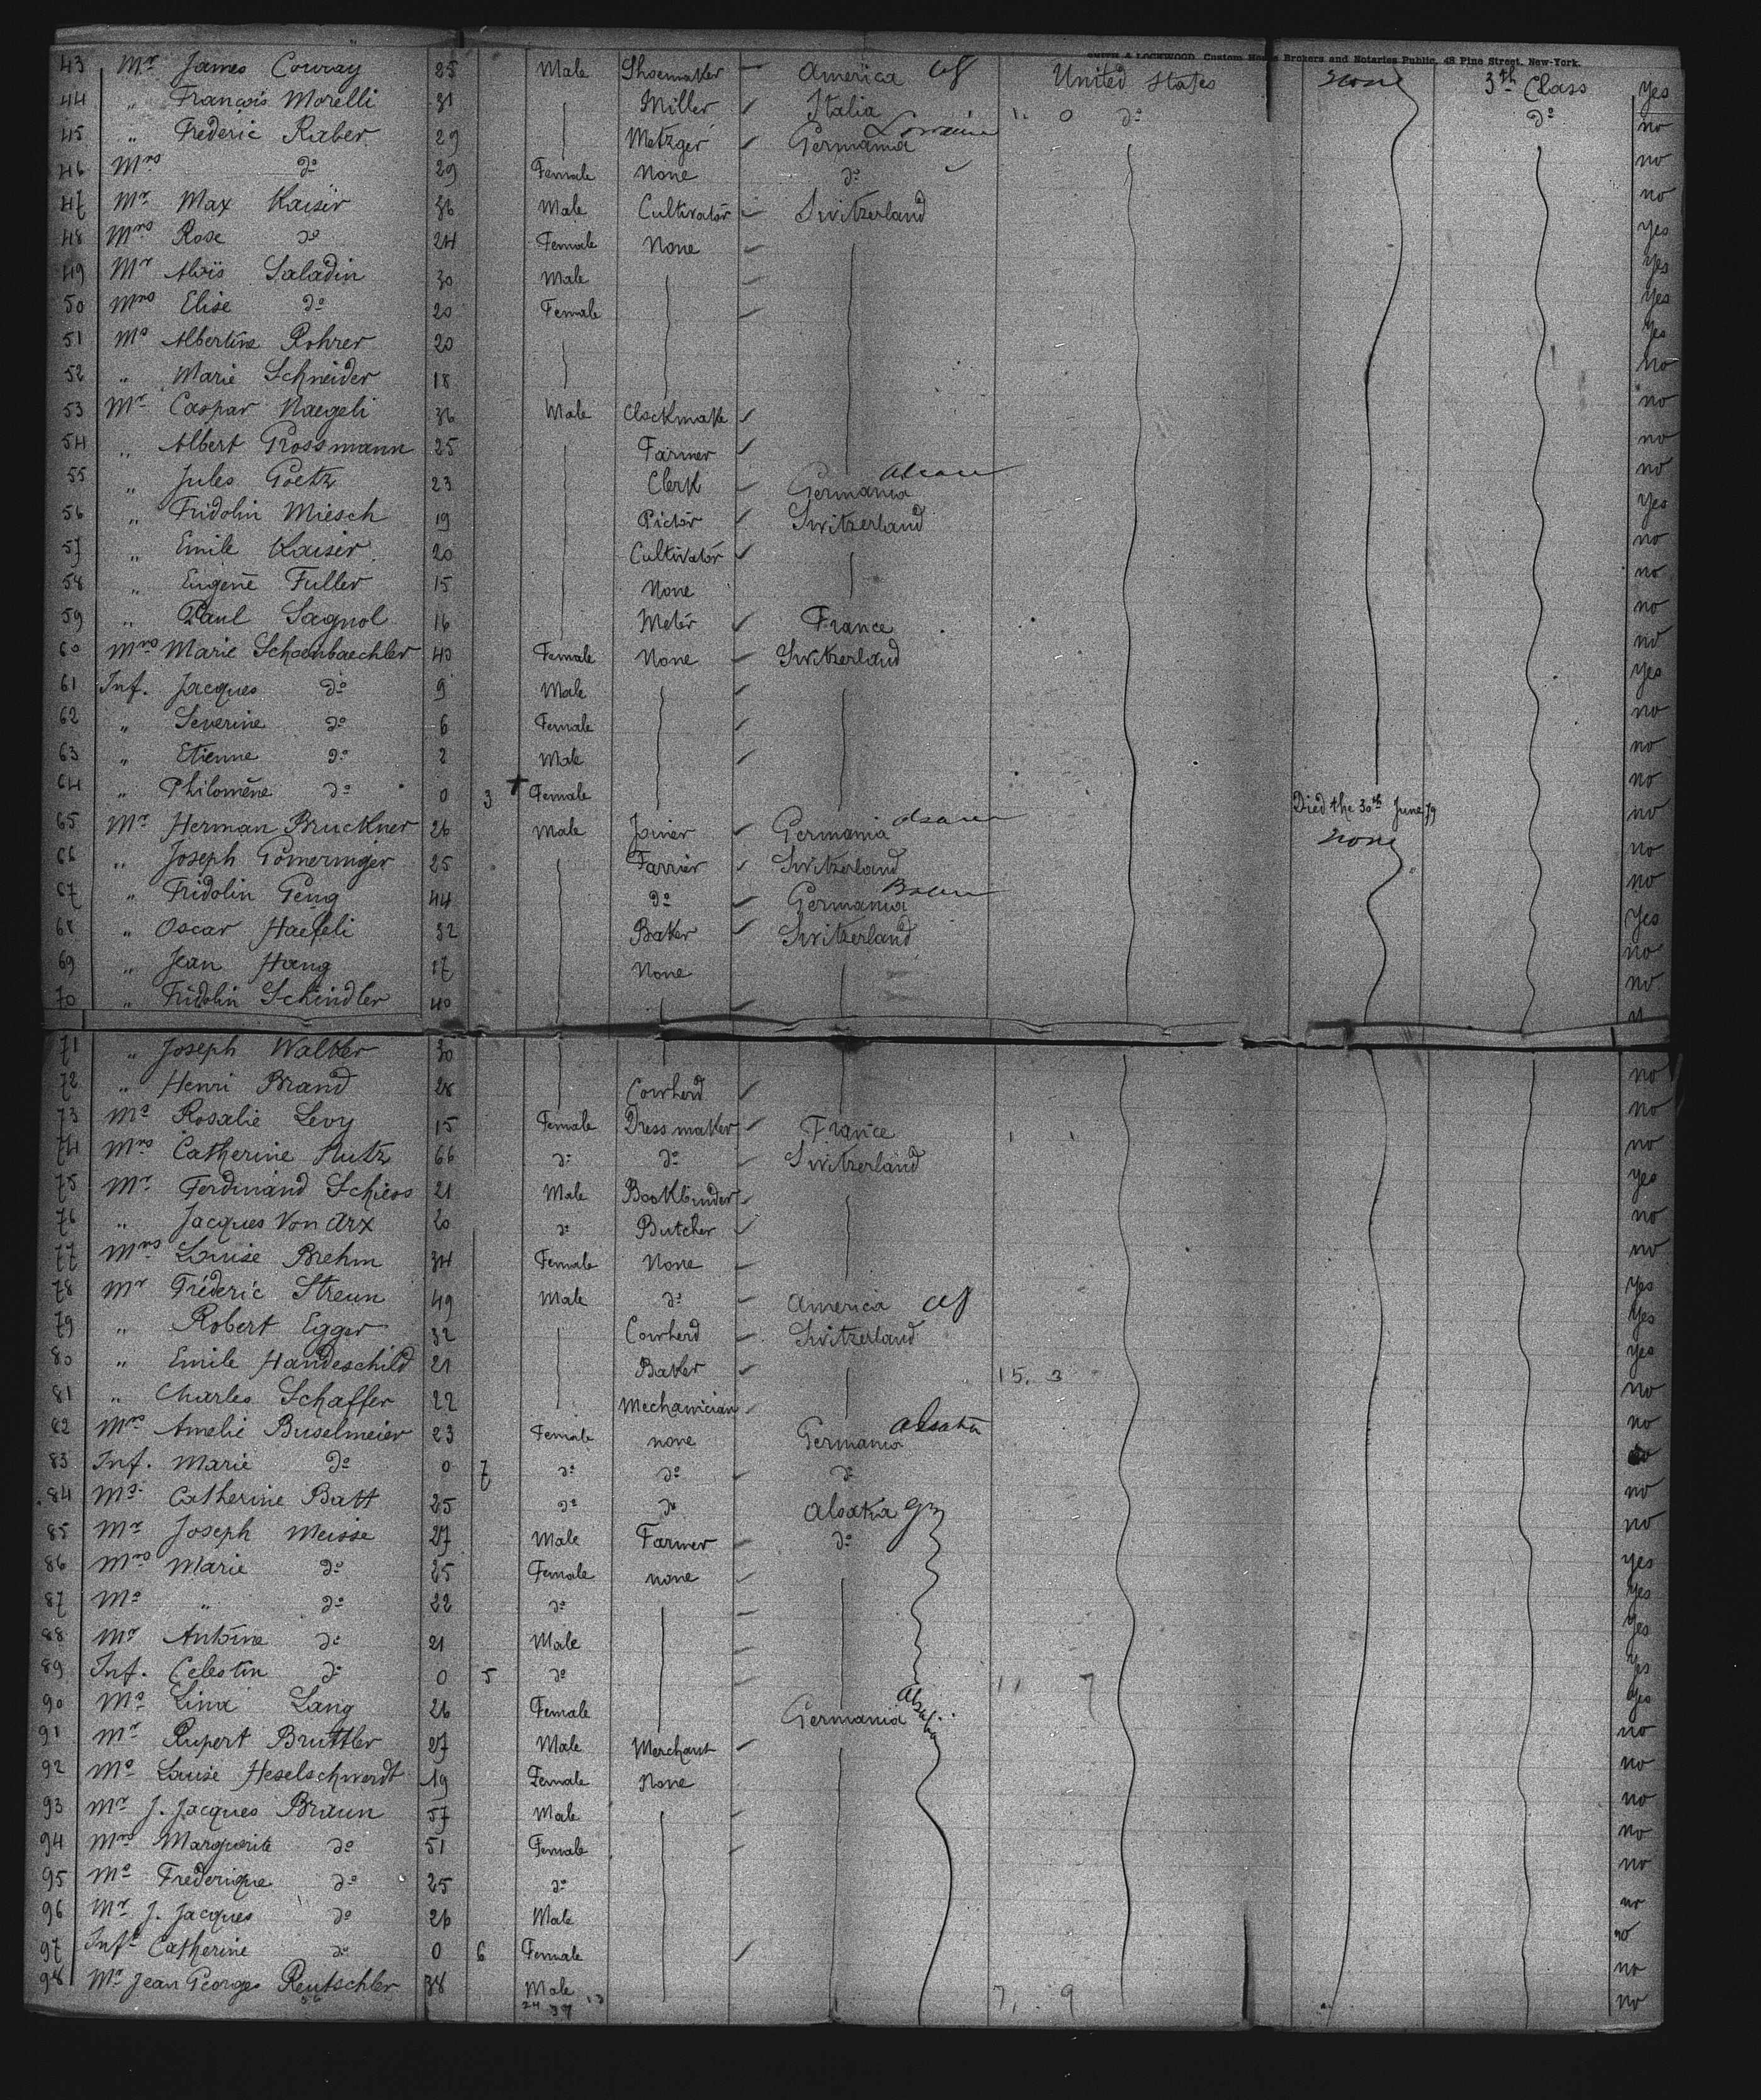 SMITH & LOCKWOOD, Custom House Brokers and Notaries Public, 48 Pine Street, New-York.
43 Mr James Conray 25 Male Shoemaker America United States None 3th Class yes
44 " François Morelli 31 Miller Italia do do no
45 " Frederic Raber 29 Metzger Germania Lorraine no
46 Mrs do 29 Female None do no
47 Mr Max Kaiser 36 Male Cultivator Switzerland yes
48 Mrs Rose do 24 Female None yes
49 Mr Aloïs Saladin 30 Male yes
50 Mrs Elise do 20 Female yes
51 Ma Albertine Rohrer 20 no
52 " Marie Schneider 18 no
53 Mr Caspar Naegeli 36 Male Clockmake no
54 " Albert Grossmann 25 Farmer no
55 " Jules Goetz 23 Clerk Germania yes
56 " Fridolin Miesch 19 Pictor Switzerland no
57 " Emile Kaiser 20 Cultivator no
58 " Eugène Fuller 15 None no
59 " Paul Sagnol 16 Meter France no
60 Mrs Marie Schoenbaechler 40 Female None Switzerland yes
61 Inf. Jacques do 9 Male no
62 " Severine do 6 Female no
63 " Etienne do 2 Male no
64 " Philomène do 0 3 Female Died the 30th June 79 no
65 Mr Herman Bruckner 26 Male Joiner Germania None no
66 " Joseph Gomeringer 25 Farrier Switzerland no
67 " Fridolin Geng 44 do Germania Yes
68 " Oscar Haefeli 32 Baker Switzerland no
69 " Jean Hang 17 None no
70 " Fridolin Schindler 40
71 " Joseph Walker 30 no
72 " Henri Brand 28 Cowherd no
73 Ma Rosalie Levy 15 Female Dress maker France no
74 Mrs Catherine Hutz 66 do do Switzerland yes
75 Mr Ferdinand Schiess 21 Male Bookbinder no
76 " Jacques Von Arx 20 do Butcher no
77 Mrs Louise Brehm 34 Female None yes
78 Mr Fréderic Streun 49 Male do America yes
79 " Robert Egger 32 Cowherd Switzerland yes
80 " Emile Handeschild 21 Baker 15. 3 no
81 " Charles Schaffer 22 Mechanician no
82 Mrs Amelie Buselmeier 23 Female none Germania Alsatia
83 Inf. Marie do 0 7 do do do no
84 Ma Catherine Batt 25 do do Alsatia no
85 Mr Joseph Meisse 27 Male Farmer do yes
86 Mrs Marie do 25 Female none yes
87 Ma " do 22 do yes
88 Mr Antoine do 21 Male yes
89 Inf. Celestin do 0 5 do 11 7 yes
90 Ma Lina Lang 26 Female Germania Alsatia no
91 Mr Rupert Bruttler 27 Male Merchant no
92 Ma Louise Heselschwerdt 19 Female None no
93 Mr J. Jacques Braun 57 Male no
94 Mrs Marguerite do 51 Female no
95 Ma Fréderique do 25 do no
96 Mr J. Jacques do 26 Male no
97 Inft Catherine do 0 6 Female no
98 Mr Jean Georges Reutschler 38 Male 7. 9 no